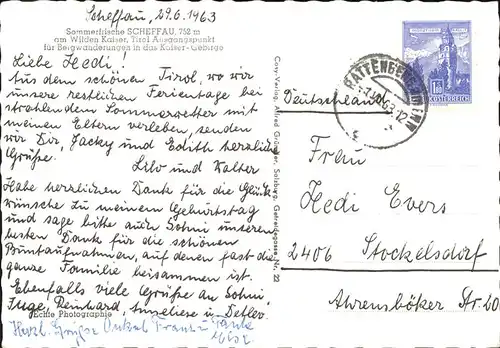 Scheffau, 29.6.1963
Sommerfrische SCHEFFAU, 752 m
am Wilden Kaiser, Tirol Ausgangspunkt
für Bergwanderungen in das Kaiser-Gebirge
Liebe Hedi!
Aus dem schönen Tirol, wo wir
unsere restlichen Ferientage bei
strahlendem Sommerwetter mit
meinen Eltern verleben, senden
wir Dir, Jacky und Edith herzliche
Grüße.
Lilo und Walter
Habe herzlichen Dank für die Glück
wünsche zu meinem Geburtstag
und sage bitte auch Sohni unseren
besten Dank für die schönen
Buntaufnahmen, auf denen fast die
ganze Familie beisammen ist.
Ebenfalls viele Grüße an Sohni,
Inge, Reinhard, Anneliese u. Detlev.
Echte Photographie
Herzl. Grüße Onkel Franz Tante
Copy. Verlag Alfred Gründler, Salzburg, Getreidegasse Nr. 22
RATTENBERG
63-12
REPUBLIK ÖSTERREICH
Deutschland
Frau
Hedi Evers
2406 Stockelsdorf
Ahrensböker Str. 20